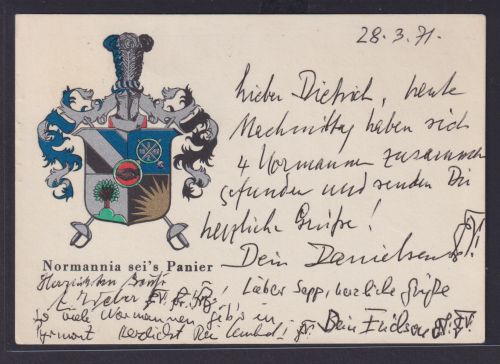 28.3.71.
Lieber Dietrich, heute
Nachmittag haben sich
4 Normannen zusammen
gefunden und senden Dir
herzliche Grüße!
Dein Danielsen
Normannia sei's Panier
Herzlichen Gruß
Lieber Sepp, herzliche Grüße
Dein
So viele Normannen gib's in
Pyrmont